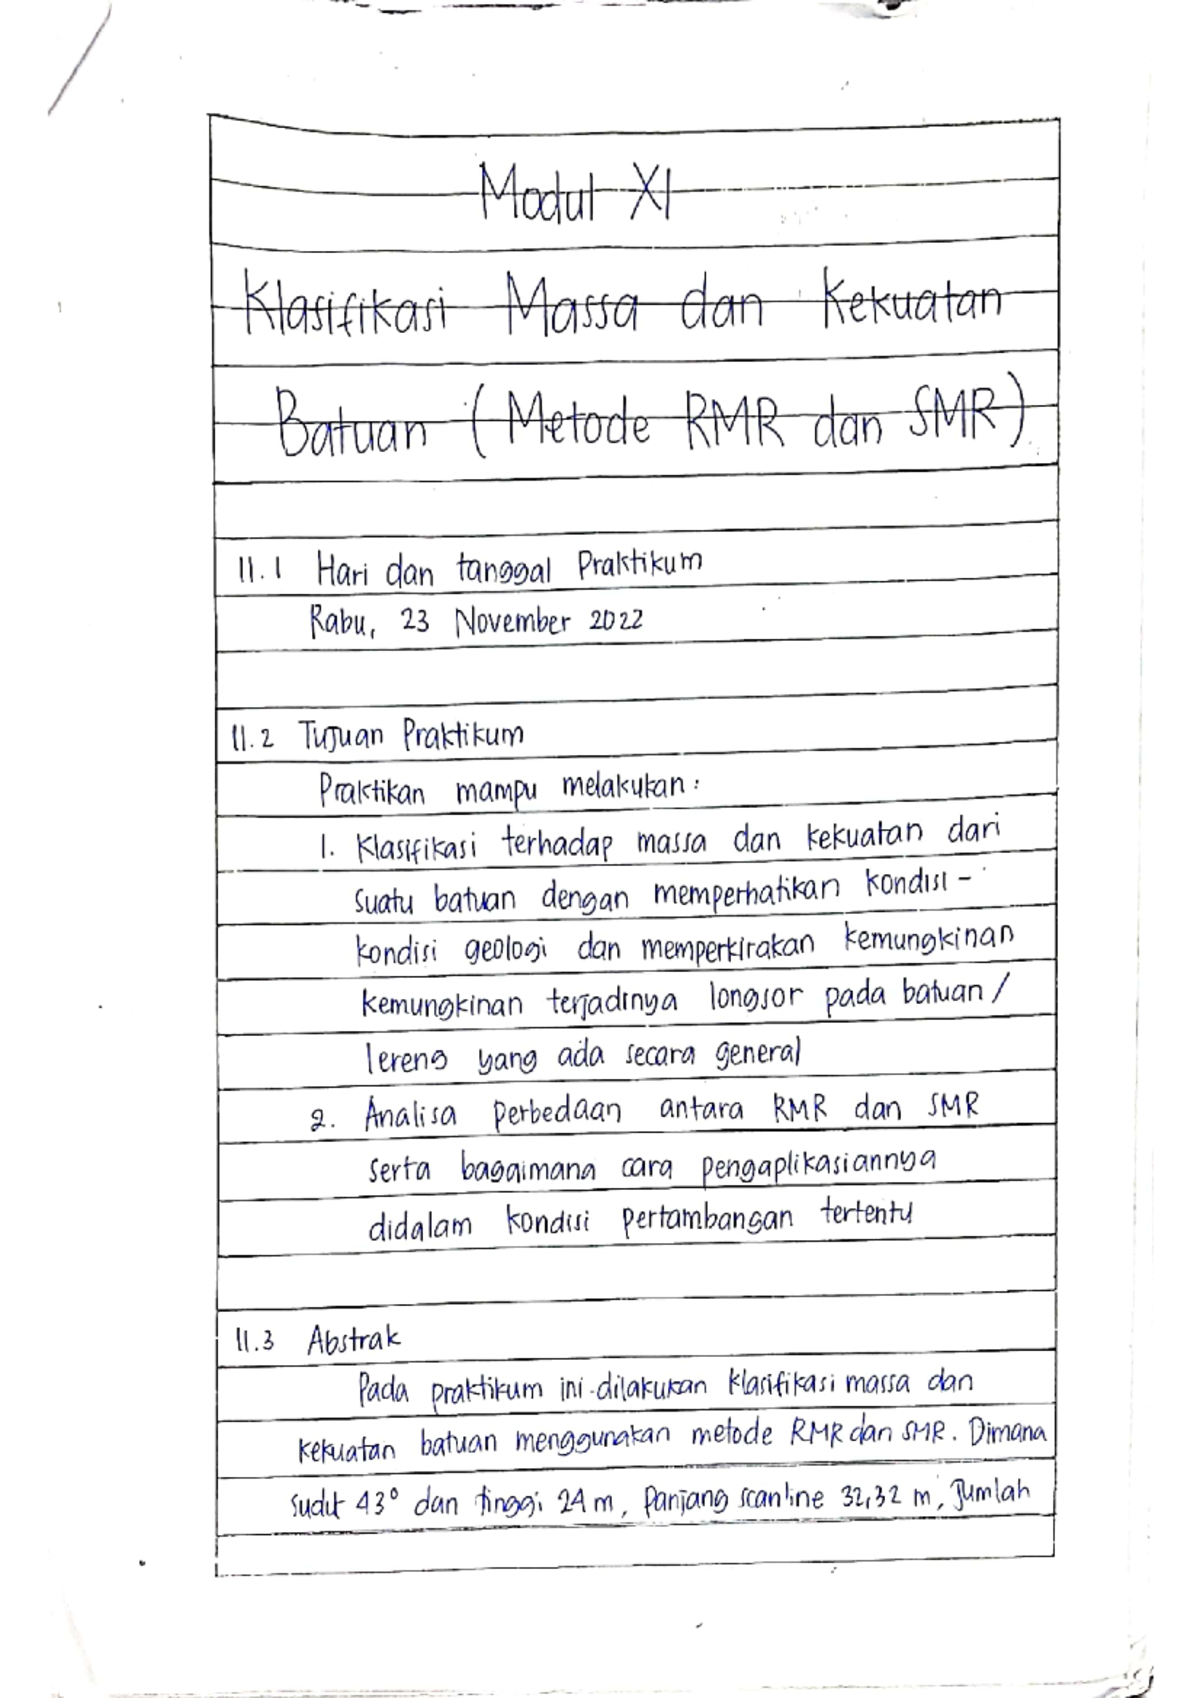 Modul XI
Klasifikasi Massa dan Kekuatan
Batuan (Metode RMR dan SMR)
11.1 Hari dan tanggal Praktikum
Rabu, 23 November 2022
11.2 Tujuan Praktikum
Praktikan mampu melakukan :
1. Klasifikasi terhadap massa dan kekuatan dari
suatu batuan dengan memperhatikan kondisi -
kondisi geologi dan memperkirakan kemungkinan
kemungkinan terjadinya longsor pada batuan /
lereng yang ada secara general
2. Analisa perbedaan antara RMR dan SMR
serta bagaimana cara pengaplikasiannya
didalam kondisi pertambangan tertentu
11.3 Abstrak
Pada praktikum ini dilakukan klasifikasi massa dan
kekuatan batuan menggunakan metode RMR dan SMR. Dimana
sudut 43° dan tinggi 24 m, panjang scanline 32,32 m, Jumlah